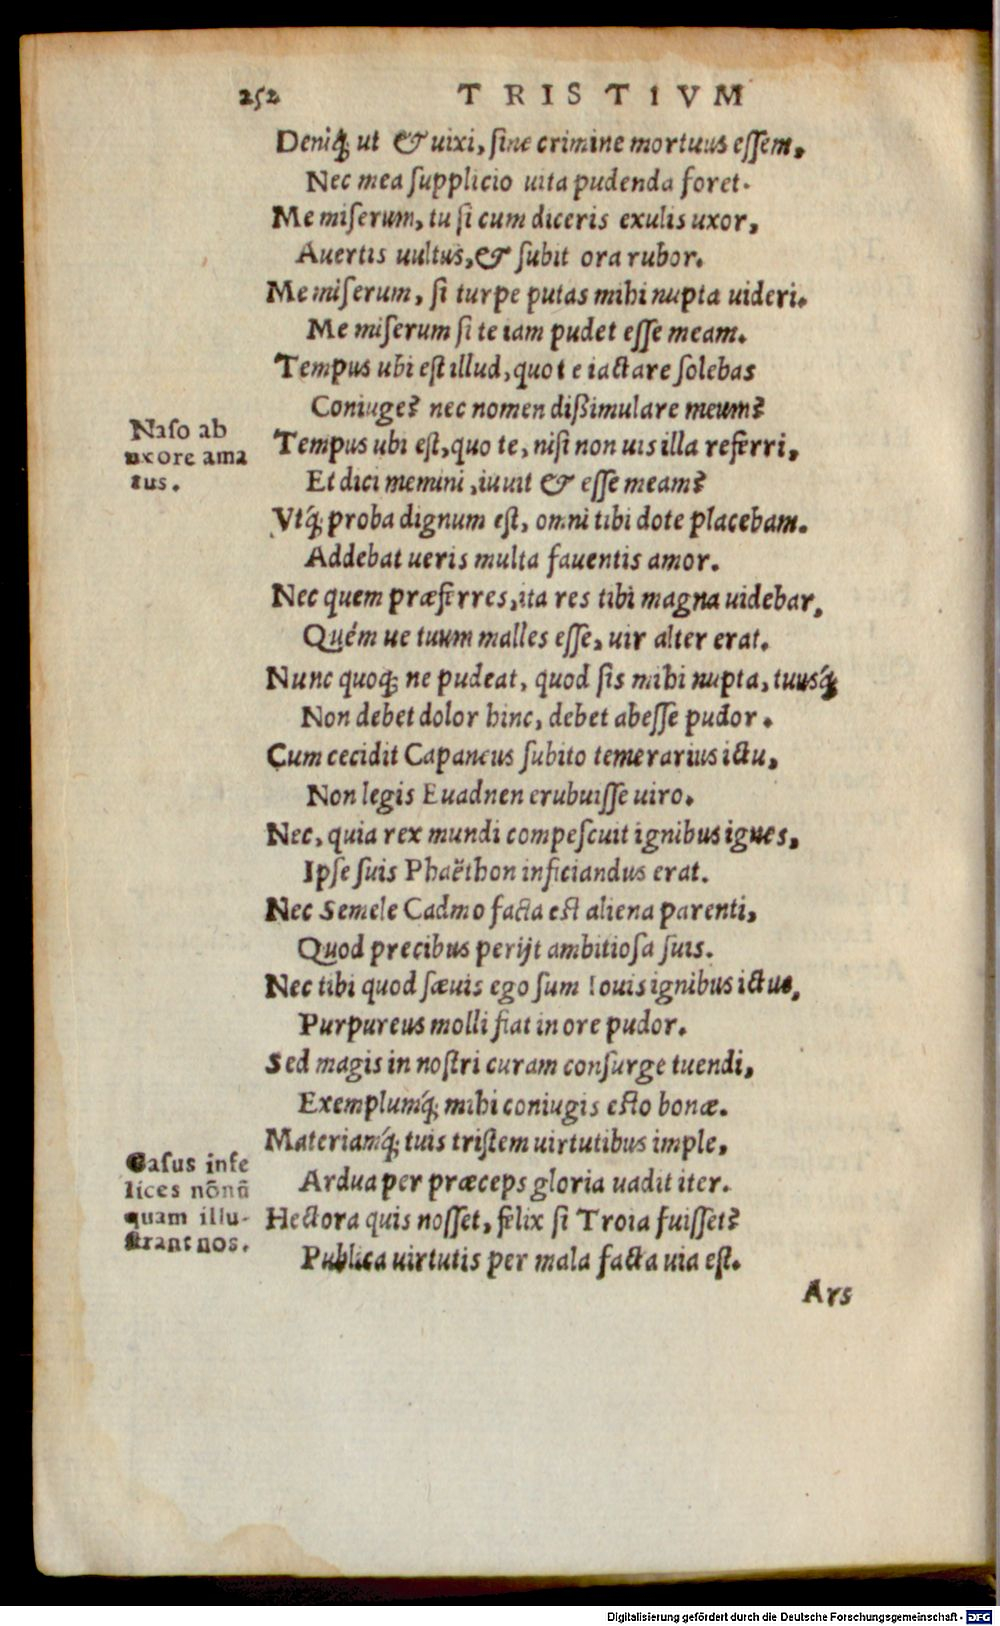 252 TRISTIVM
Deniq; ut & uixi, sine crimine mortuus essem,
Nec mea supplicio uita pudenda foret.
Me miserum, tu si cum diceris exulis uxor,
Auertis uultus, & subit ora rubor.
Me miserum, si turpe putas mihi nupta uideri.
Me miserum si te iam pudet esse meam.
Tempus ubi est illud, quo te iactare solebas
Coniuge? nec nomen dißimulare meum?
Naso ab
uxore ama
tus.
Tempus ubi est, quo te, nisi non uis illa referri,
Et dici memini, iuuit & esse meam?
Vtq́; proba dignum est, omni tibi dote placebam.
Addebat ueris multa fauentis amor.
Nec quem præferres, ita res tibi magna uidebar,
Quém ue tuum malles esse, uir alter erat.
Nunc quoq; ne pudeat, quod sis mihi nupta, tuusq́;
Non debet dolor hinc, debet abesse pudor.
Cum cecidit Capaneus subito temerarius ictu,
Non legis Euadnen erubuisse uiro.
Nec, quia rex mundi compescuit ignibus ignes,
Ipse suis Phaëthon inficiandus erat.
Nec Semele Cadmo facta est aliena parenti,
Quod precibus perijt ambitiosa suis.
Nec tibi quod sæuis ego sum Iouis ignibus ictus,
Purpureus molli fiat in ore pudor.
Sed magis in nostri curam consurge tuendi,
Exemplumq́; mihi coniugis esto bonæ.
Materiamq́; tuis tristem uirtutibus imple,
Casus infe
lices nõnũ
quam illu-
strant nos.
Ardua per præceps gloria uadit iter.
Hectora quis nosset, felix si Troia fuisset?
Publica uirtutis per mala facta uia est.
Ars
Digitalisierung gefördert durch die Deutsche Forschungsgemeinschaft - DFG